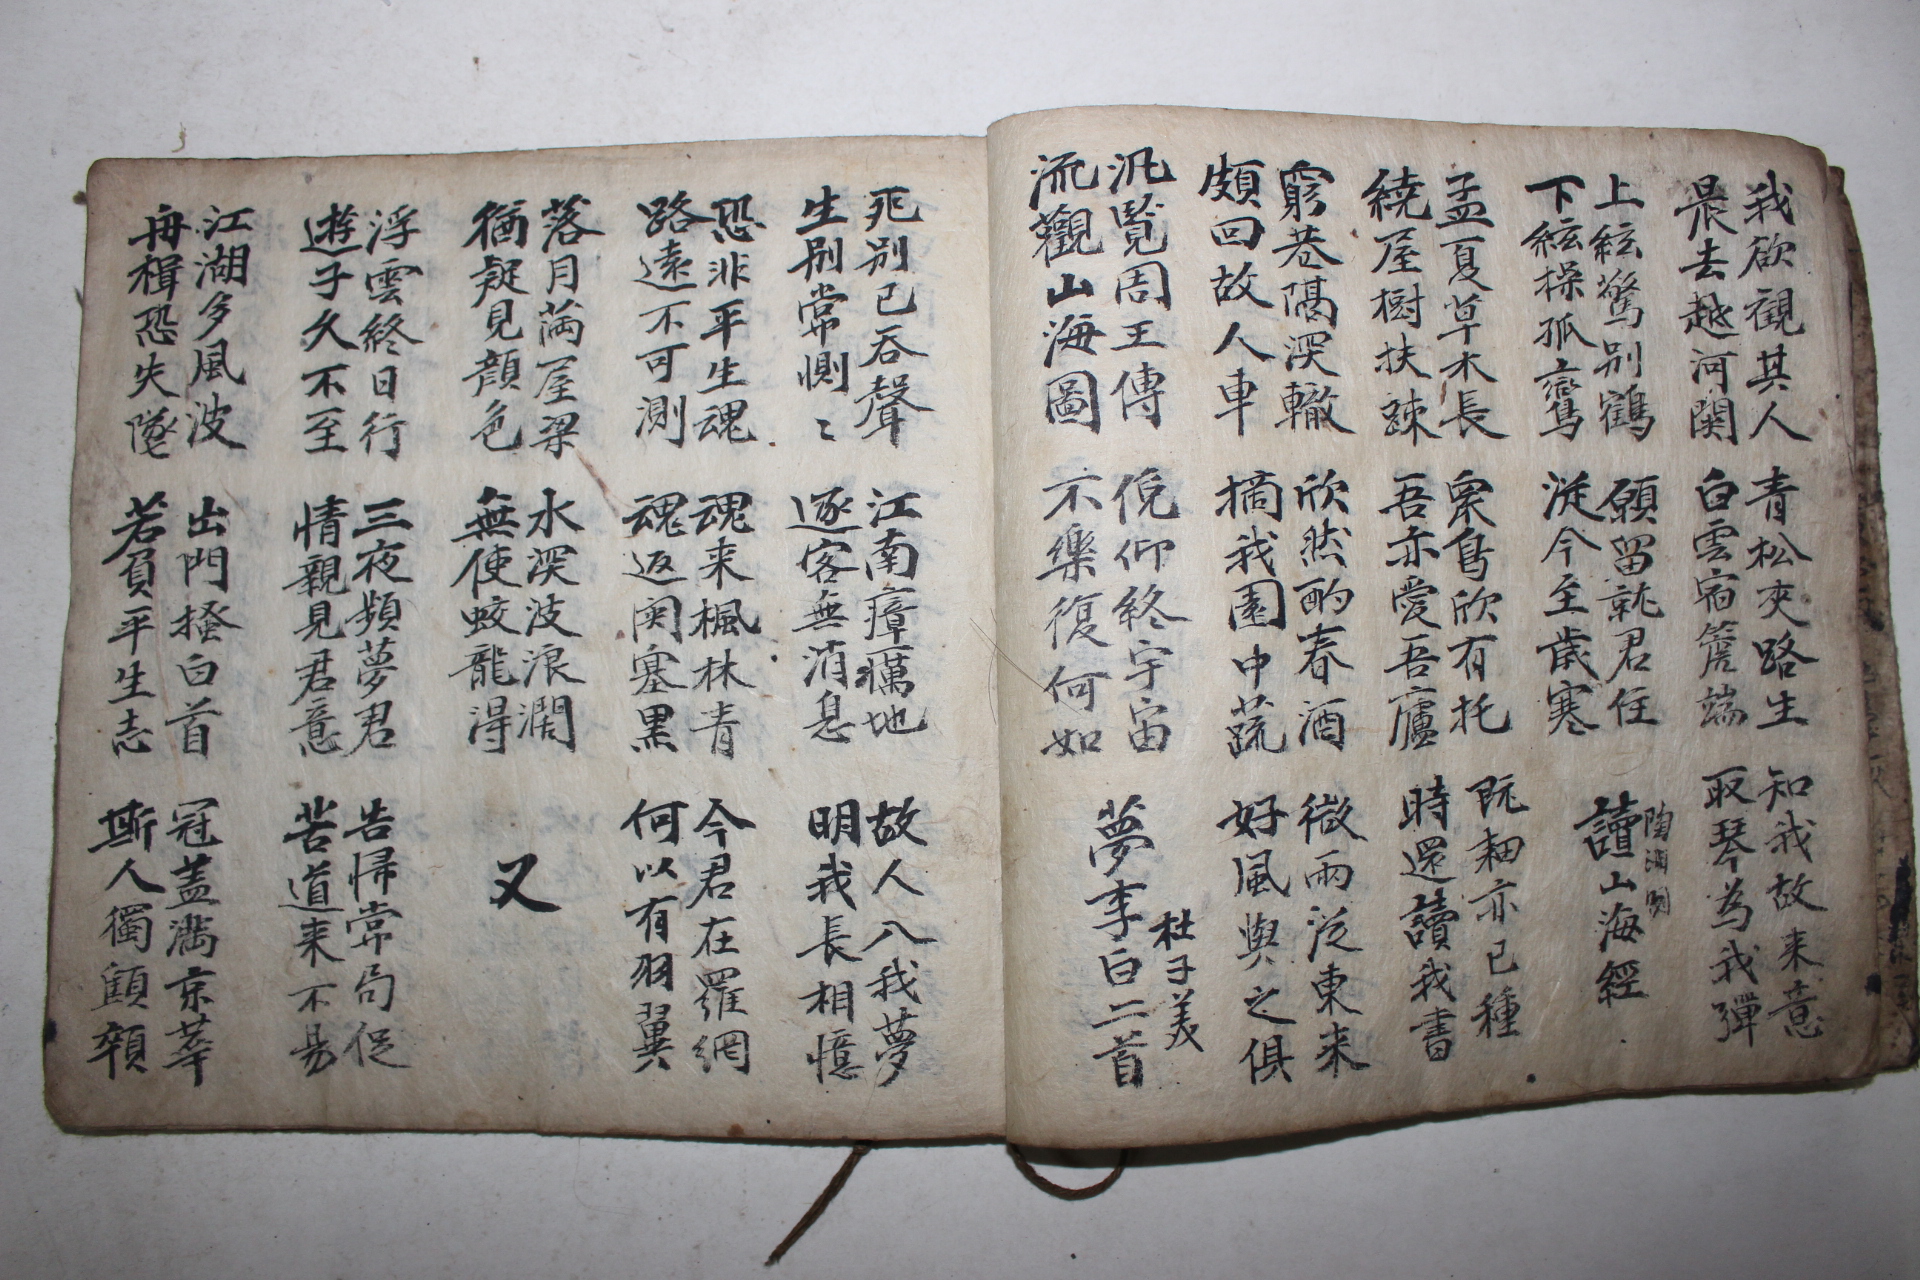 我欲觀其人
晨去越河関
青松夾路生
白雲宿簷端
知我故来意
取琴為我彈
上絃驚別鶴
下絃操孤鸞
願留就君住
従今至歲寒
陶淵明
讀山海經
孟夏草木長
繞屋樹扶踈
衆鳥欣有托
吾亦愛吾廬
既耕亦已種
時還讀我書
窮巷隔深轍
頗回故人車
欣然酌春酒
摘我園中蔬
微雨従東来
好風與之俱
汎覽周王傳
流觀山海圖
俛仰終宇宙
不樂復何如
杜子美
夢李白二首
死別已吞聲
生別常惻〻
江南瘴癘地
逐客無消息
故人入我夢
明我長相憶
恐非平生魂
路遠不可測
魂来楓林青
魂返関塞黑
今君在羅網
何以有羽翼
落月滿屋梁
猶疑見顏色
水深波浪濶
無使蛟龍得
又
浮雲終日行
遊子久不至
三夜頻夢君
情親見君意
告帰常局促
苦道来不易
江湖多風波
舟楫恐失墜
出門搔白首
若負平生志
冠盖滿京華
斯人獨顦顇